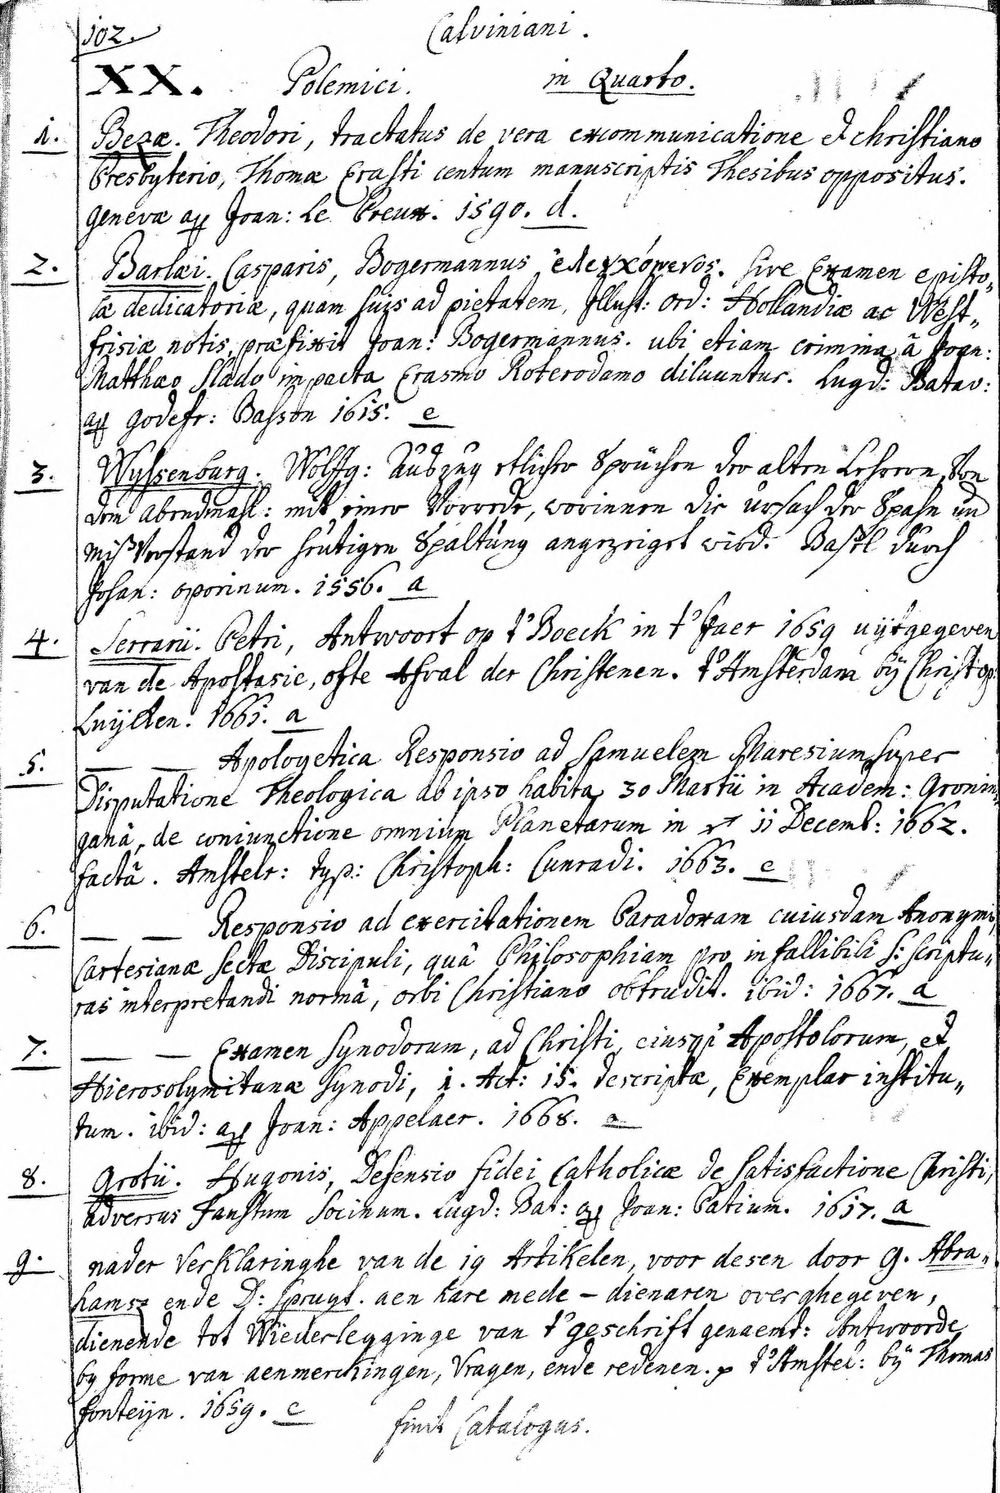 102.
Calviniani.
XX. Polemici. in Quarto.
1. Bezæ. Theodori, tractatus de vera excommunicatione et christiano
Presbyterio, Thomæ Erasti centum manuscriptis Thesibus oppositus.
Genevæ ap Joan: Le Preux. 1590. d.
2. Barlæi. Casparis, Bogermannus ἐλεγχόμενος. sive Examen episto„
læ dedicatoriæ, quam suis ad pietatem Illust: ord: Hollandiæ ac West„
frisiæ notis, præfixit Joan: Bogermannus. ubi etiam crimina â Joan:
Matthæo Slado impacta Erasmo Roterodamo diluuntur. Lugd: Batav:
ap Godefr: Basson 1615. e
3. Wyssenburg. Wolffg: Außzug etlicher Sprüchen der alten Lehrern, Von
dem abendmahl: mit einer Vorrede, worinnen die ursach der Spahn und
mißverstand der heütigen Spaltung angezeiget wird. Basel durch
Johan: oporinum. 1556. a
4. Serrarii. Petri, Antwoort op t'Boeck in t'Jaer 1659 uÿtgegeven
van de Apostasie, ofte Afval der Christenen. t'Amsterdam bÿ Christop:
Luÿcken. 1661. a
5. — — Apologetica Responsio ad Samuelem Maresium super
Disputatione Theologica ab ipso habita 30 Martii in Academ: Gronin„
ganâ, de coniunctione omnium Planetarum in ♐ 11 Decemb: 1662.
factâ. Amstelr: typ: Christoph: Cunradi. 1663. e
6. — — Responsio ad exercitationem Paradoxam cuiusdam Anonymi,
Cartesianæ sectæ Discipuli, quâ Philosophiam pro infallibili S: Scriptu„
ras interpretandi normâ, orbi Christiano obtrudit. ibid: 1667. a
7. — — Examen Synodorum, ad Christi, eiusq; Apostolorum, et
Hierosolymitanæ Synodi, 1. Act: 15. descriptæ, Exemplar institu„
tum. ibid: ap Joan: Appelaer. 1668. a
8. Grotii. Hugonis, Defensio fidei Catholicæ de satisfactione Christi,
adversus Faustum Socinum. Lugd: Bat: ap Joan: Patium. 1617. a
9. nader Verklaringhe van de 19 Artikelen, voor desen door G. Abra„
hamsz ende D: Spruyt. aen hare mede-dienaren overghegeven,
dienende tot Wiederlegginge van t'geschrift genaemt: Antwoorde
by forme van aenmerckingen, Vragen, ende redenen. t'Amstel: bÿ Thomas
fonteijn. 1659. e
finis Catalogus.